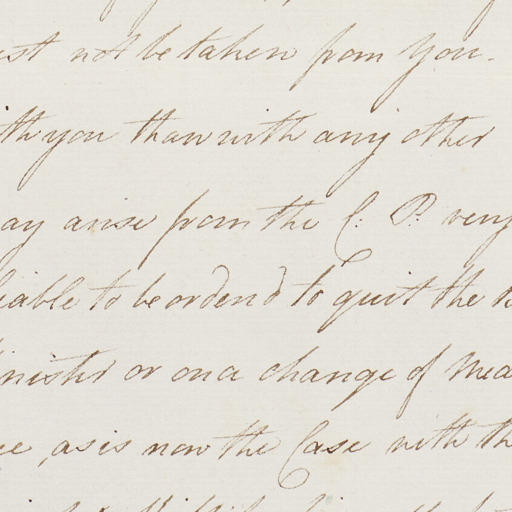 not be taken from you.
with you than with any other
may arise from the C: P: very
liable to be ordered to quit the
Minister or on a change of
as is now the Case with th